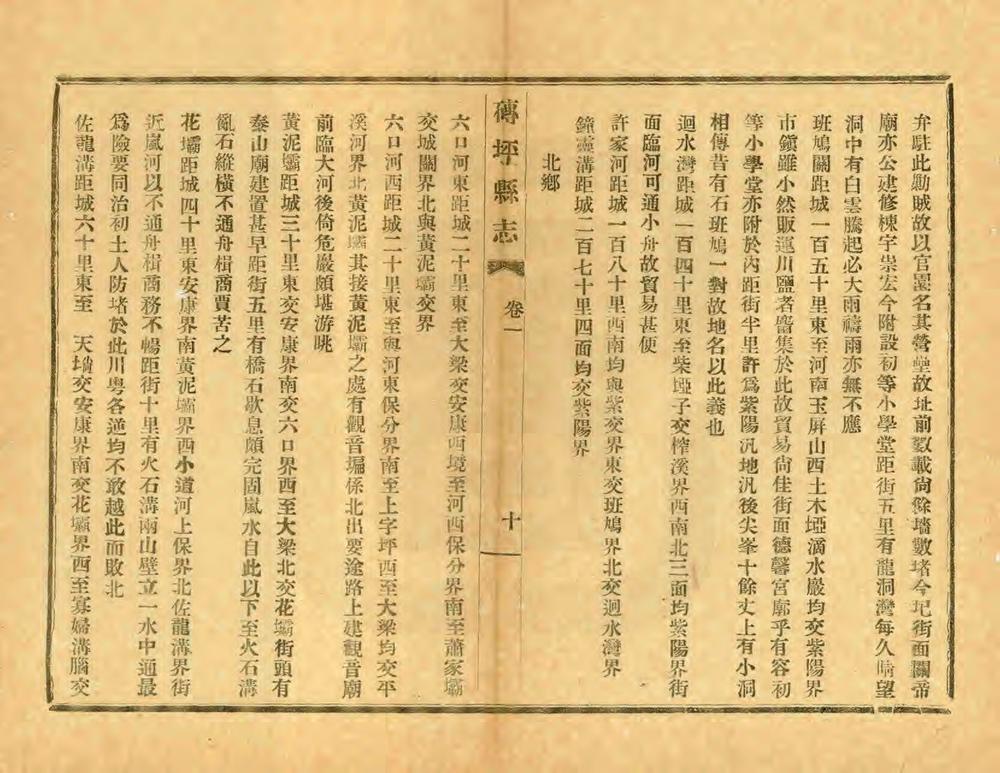 弁駐此勦賊故以官園名其營壘故址前數載尚餘墻數堵今圮街面關帝
廟亦公建修棟宇崇宏今附設初等小學堂距街五里有龍洞灣每久晴望
洞中有白雲騰起必大雨禱雨亦無不應
班鳩關距城一百五十里東至河南玉屏山西土木埡滴水巖均交紫陽界
市鎮雖小然販運川鹽者麕集於此故貿易尚佳街面德馨宮廓乎有容初
等小學堂亦附於內距街半里許爲紫陽汎地汎後尖峯十餘丈上有小洞
相傳昔有石班鳩一對故地名以此義也
迴水灣距城一百四十里東至柴埡子交榨溪界西南北三面均紫陽界街
面臨河可通小舟故貿易甚便
許家河距城一百八十里西南均與紫交界東交班鳩界北交迴水灣界
鐘靈溝距城二百七十里四面均交紫陽界
北鄉
磚坪縣志
卷一
十
六口河東距城二十里東至大梁交安康西境至河西保分界南至蕭家壩
交城關界北與黃泥壩交界
六口河西距城二十里東至與河東保分界南至上字坪西至大梁均交平
溪河界北黃泥壩其接黃泥壩之處有觀音碥係北出要途路上建觀音廟
前臨大河後倚危巖頗堪游眺
黃泥壩距城三十里東交安康界南交六口界西至大梁北交花壩街頭有
泰山廟建置甚早距街五里有橋石歇息頗完固嵐水自此以下至火石溝
亂石縱橫不通舟楫商賈苦之
花壩距城四十里東安康界南黃泥壩界西小道河上保界北佐龍溝界街
近嵐河以不通舟楫商務不暢距街十里有火石溝兩山壁立一水中通最
爲險要同治初土人防堵於此川粵各逆均不敢越此而敗北
佐龍溝距城六十里東至 天墻交安康界南交花壩界西至寡婦溝腦交